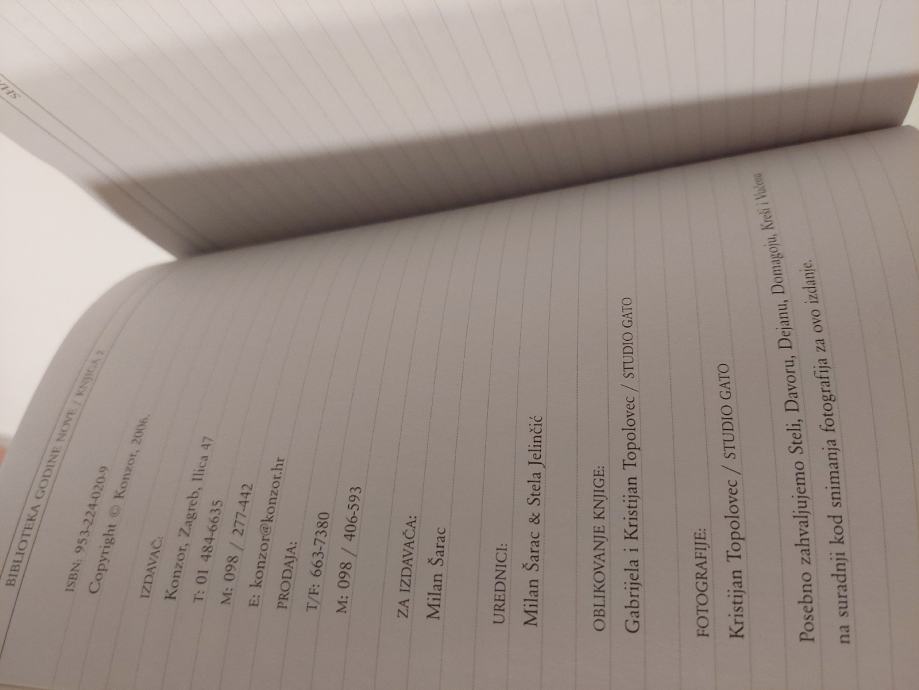 BIBLIOTEKA GODINE NOVE / KNJIGA 2
ISBN: 953-224-020-9
Copyright © Konzor, 2006.
IZDAVAČ:
Konzor, Zagreb, Ilica 47
T: 01 484-6635
M: 098 / 277-442
E: konzor@konzor.hr
PRODAJA:
T/F: 663-7380
M: 098 / 406-593
ZA IZDAVAČA:
Milan Šarac
UREDNICI:
Milan Šarac & Stela Jelinčić
OBLIKOVANJE KNJIGE:
Gabrijela i Kristijan Topolovec / STUDIO GATO
FOTOGRAFIJE:
Kristijan Topolovec / STUDIO GATO
Posebno zahvaljujemo Steli, Davoru, Dejanu, Domagoju, Kreši i
na suradnji kod snimanja fotografija za ovo izdanje.